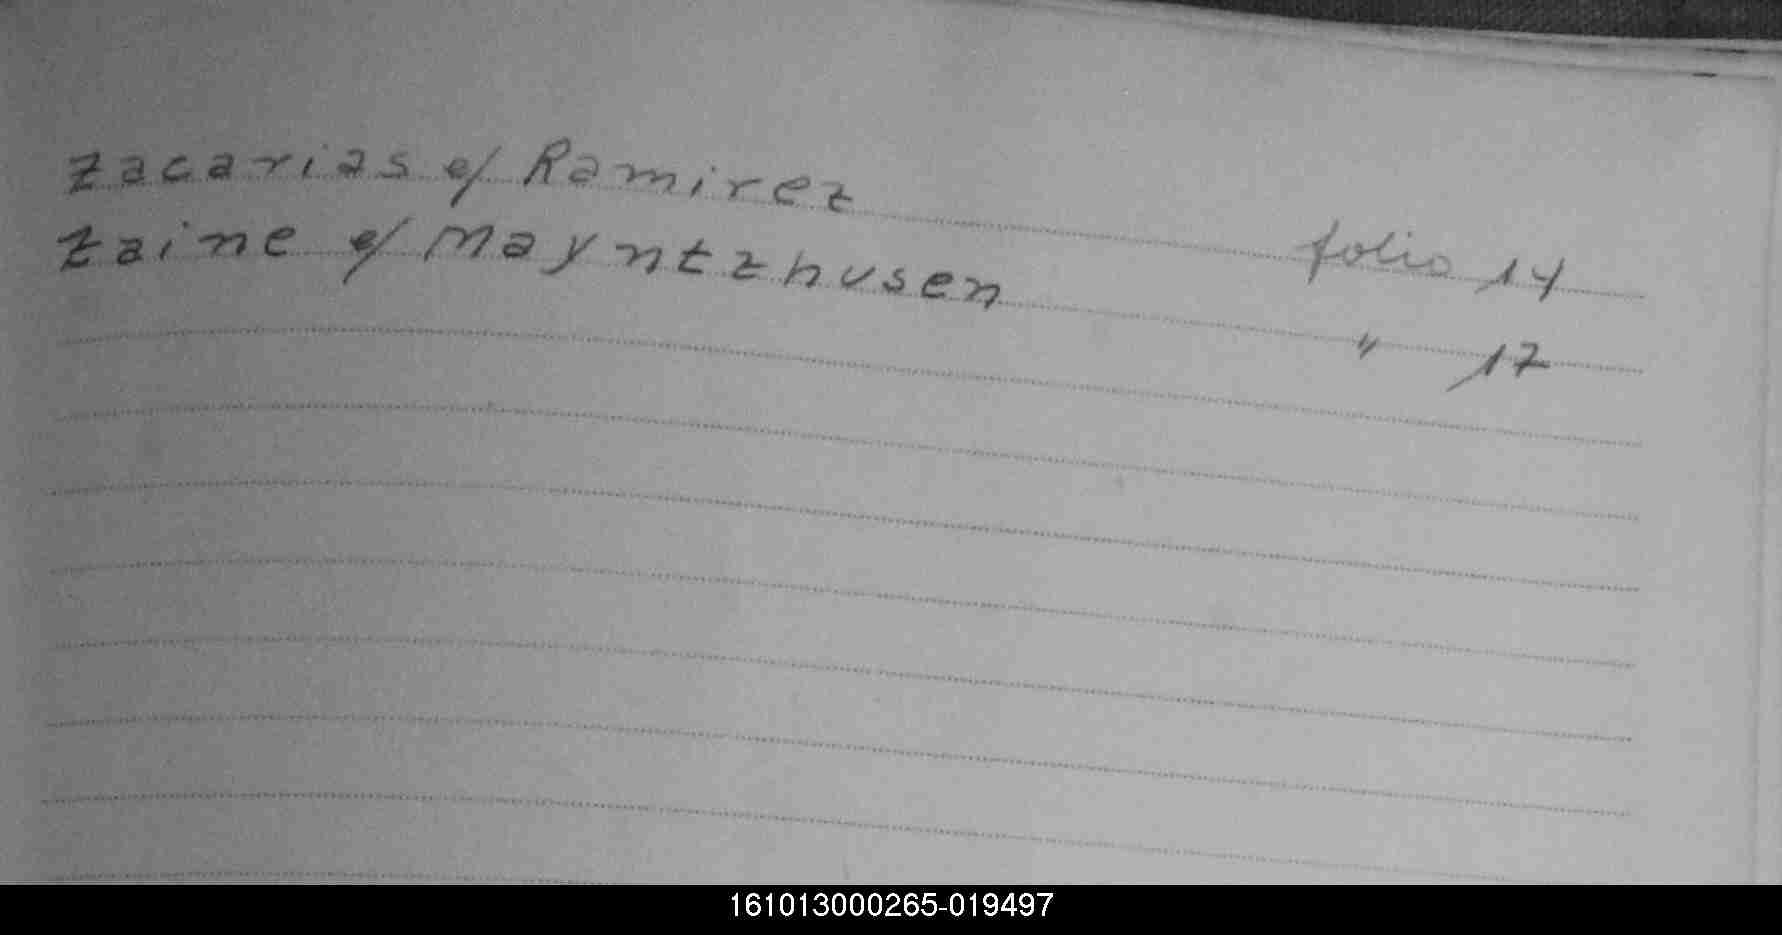 Zacarias c/ Ramirez folio 14
Zaine c/ Mayntzhusen " 17
161013000265-019497